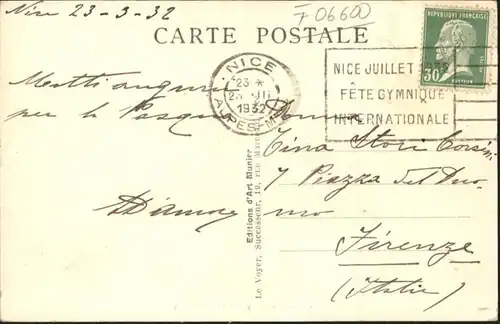 Nice 23-3-32
F 06600
CARTE POSTALE
REPUBLIQUE FRANÇAISE
30c
PASTEUR
NICE
23 *
23 III
1932
ALPES MMES
NICE JUILLET 1932
FÊTE GYMNIQUE
INTERNATIONALE
per la Pasqua
Tina Stori Corsini
7 Piazza del Duo-
mo
Firenze
(Italie)
Editions d'Art Munier
Le Voyer, Successeur, 19, rue